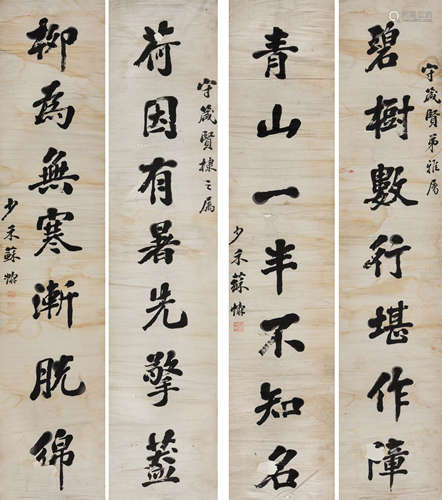 守箴賢弟雅屬
碧樹數行堪作障
青山一半不知名
少禾蘇
守箴賢棣之屬
荷因有暑先擎蓋
柳為無寒漸脫綿
少禾蘇